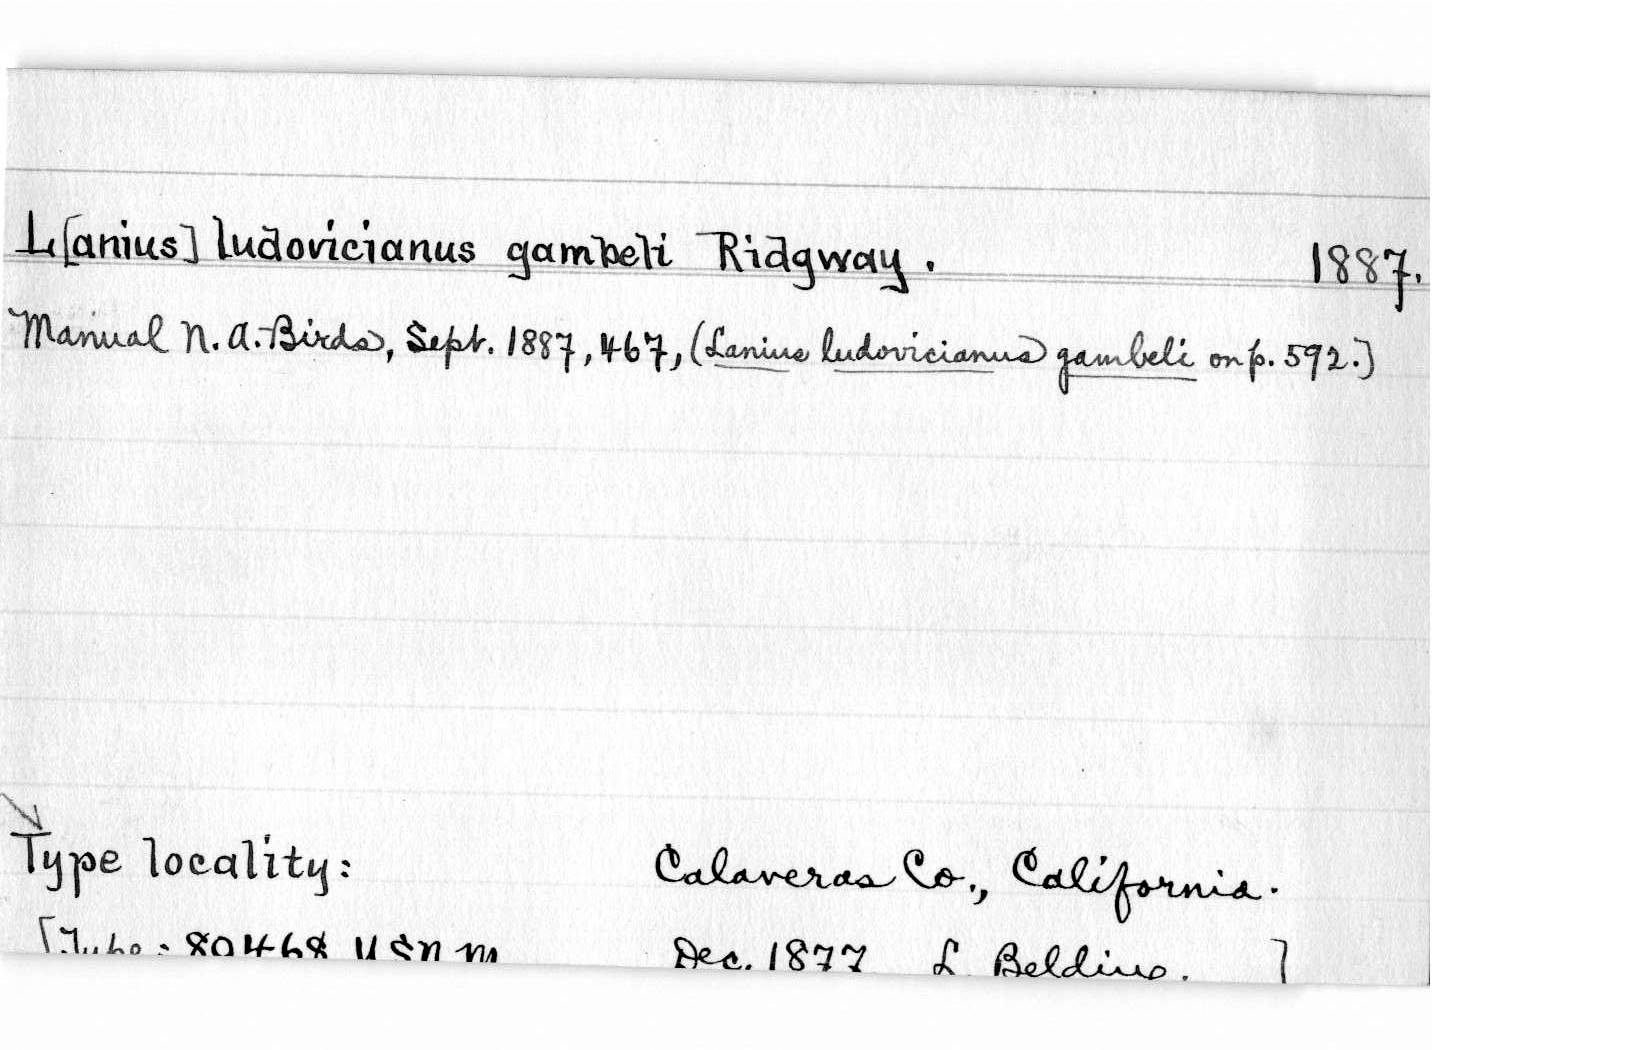 L[anius] ludovicianus gambeli Ridgway. 1887.
Manual N. A. Birds, Sept. 1887, 467, (Lanius ludovicianus gambeli on p. 592.]
Type locality: Calaveras Co., California.
[Type: 80468 USNM Dec. 1877 L. Belding. ]